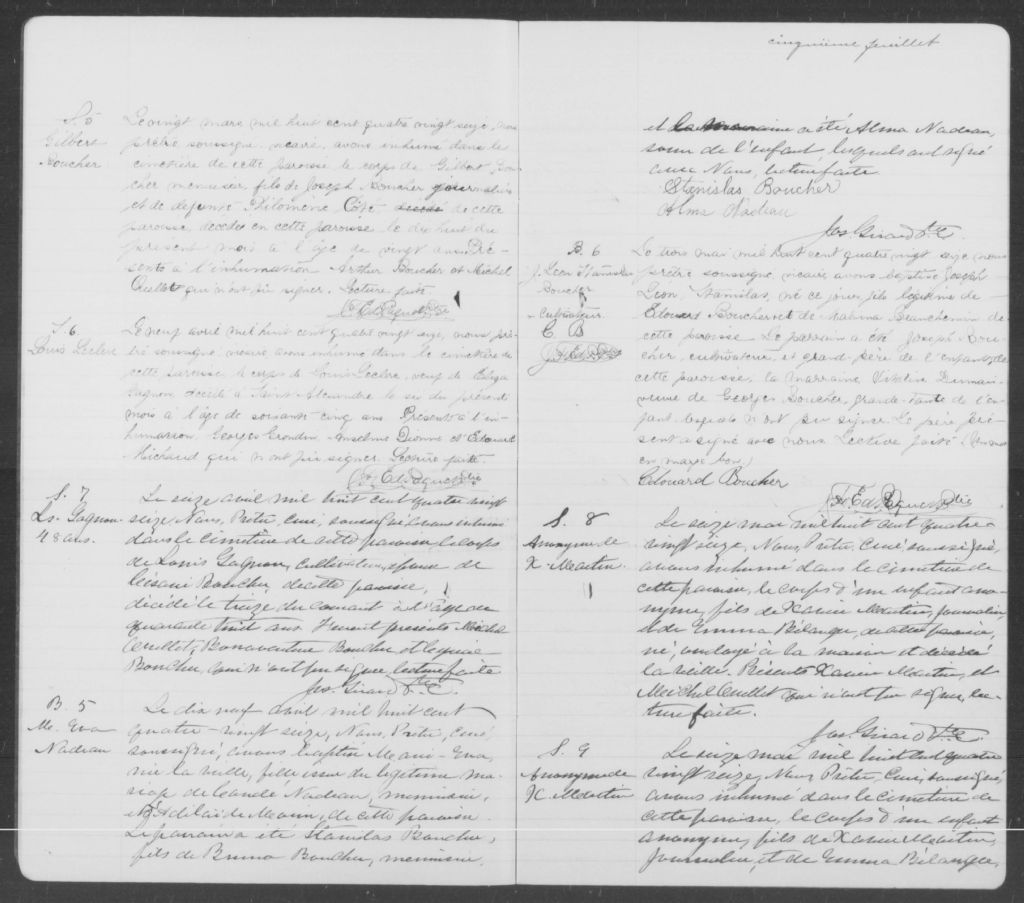 S. 5
Gilbert
Boucher
Le vingt mars mil huit cent quatre vingt seize, nous
prêtre soussigné vicaire, avons inhumé dans le
cimetière de cette paroisse le corps de Gilbert Bou-
cher menuisier, fils de Joseph Boucher journalier
et de défunte Philomène Côté, de cette
paroisse décédé en cette paroisse le dix huit du
présent mois à l'âge de vingt ans. Pré-
sents à l'inhumation Arthur Boucher et Michel
Ouellet qui n'ont pu signer. Lecture faite
S. 6.
Louis Leclerc
Le neuf avril mil huit cent quatre vingt seize, nous prê-
tre soussigné vicaire avons inhumé dans le cimetière de
cette paroisse le corps de Louis Leclerc, veuf de Eliza
Gagnon décédé à Saint-Alexandre le six du présent
mois à l'âge de soixante cinq ans. Présents à l'in-
humation, Georges Grondin, Anselme Dionne et Edouard
Michaud qui n'ont pu signer. Lecture faite.
S. 7
Ls. Gagnon
48 ans.
Le seize avril mil huit cent quatre vingt
seize, Nous, Prêtre, Curé, soussigné avons inhumé
dans le cimetière de cette paroisse le corps
de Louis Gagnon, cultivateur, époux de
Césarie Boucher, de cette paroisse,
décédé le treize du courant à l'âge de
quarante huit ans. Furent présents Michel
Ouellet, Bonaventure Boucher et
Boucher, qui n'ont pu signer, lecture faite
Jos. Girard Ptre C.
B. 5
M. Eva
Nadeau
Le dix neuf avril mil huit cent
quatre-vingt seize, Nous, Prêtre, Curé,
soussigné, avons baptisé Marie-Eva,
née la veille, fille issue du légitime ma-
riage de Nadeau, menuisier,
et d'Adélaïde de cette paroisse.
Le parrain a été Stanislas Boucher,
fils de Bruno Boucher, menuisier,
cinquième feuillet
et la marraine a été Alma Nadeau,
soeur de l'enfant, lesquels ont signé
avec Nous, lecture faite
Stanislas Boucher
Alma Nadeau
Jos. Girard Ptre C.
B. 6
J. Léon Stanislas
Boucher
- cultivateur.
E B
Le trois mai mil huit cent quatre vingt seize nous
prêtre soussigné, vicaire avons baptisé Joseph
Léon, Stanislas, né ce jour, fils légitime de
Edouard Boucher et de Malvina Beauchemin de
cette paroisse. Le parrain a été Joseph Bou-
cher, cultivateur et grand-père de l'enfant, de
cette paroisse, la marraine Vitaline Dumais
veuve de Georges Boucher, grande-tante de l'en-
fant lesquels n'ont su signer. Le père pré-
sent a signé avec nous. Lecture faite. (Un mot
en marge bon.)
Edouard Boucher
S. 8
Anonyme de
X. Martin.
Le seize mai mil huit cent quatre
vingt seize, Nous, Prêtre, Curé, soussigné,
avons inhumé dans le cimetière de
cette paroisse, le corps d'un enfant ano-
nyme, fils de Xavier Martin, journalier,
et de Emma Bélanger, de cette paroisse,
né, ondoyé à la maison et décédé
la veille. Présents Xavier Martin, et
Michel Ouellet qui n'ont pu signer, lec-
ture faite.
Jos. Girard Ptre C.
S. 9
Anonyme de
X. Martin
Le seize mai mil huit cent quatre
vingt seize, Nous, Prêtre, Curé, soussigné,
avons inhumé dans le cimetière de
cette paroisse, le corps d'un enfant
anonyme, fils de Xavier Martin,
journalier, et de Emma Bélanger,